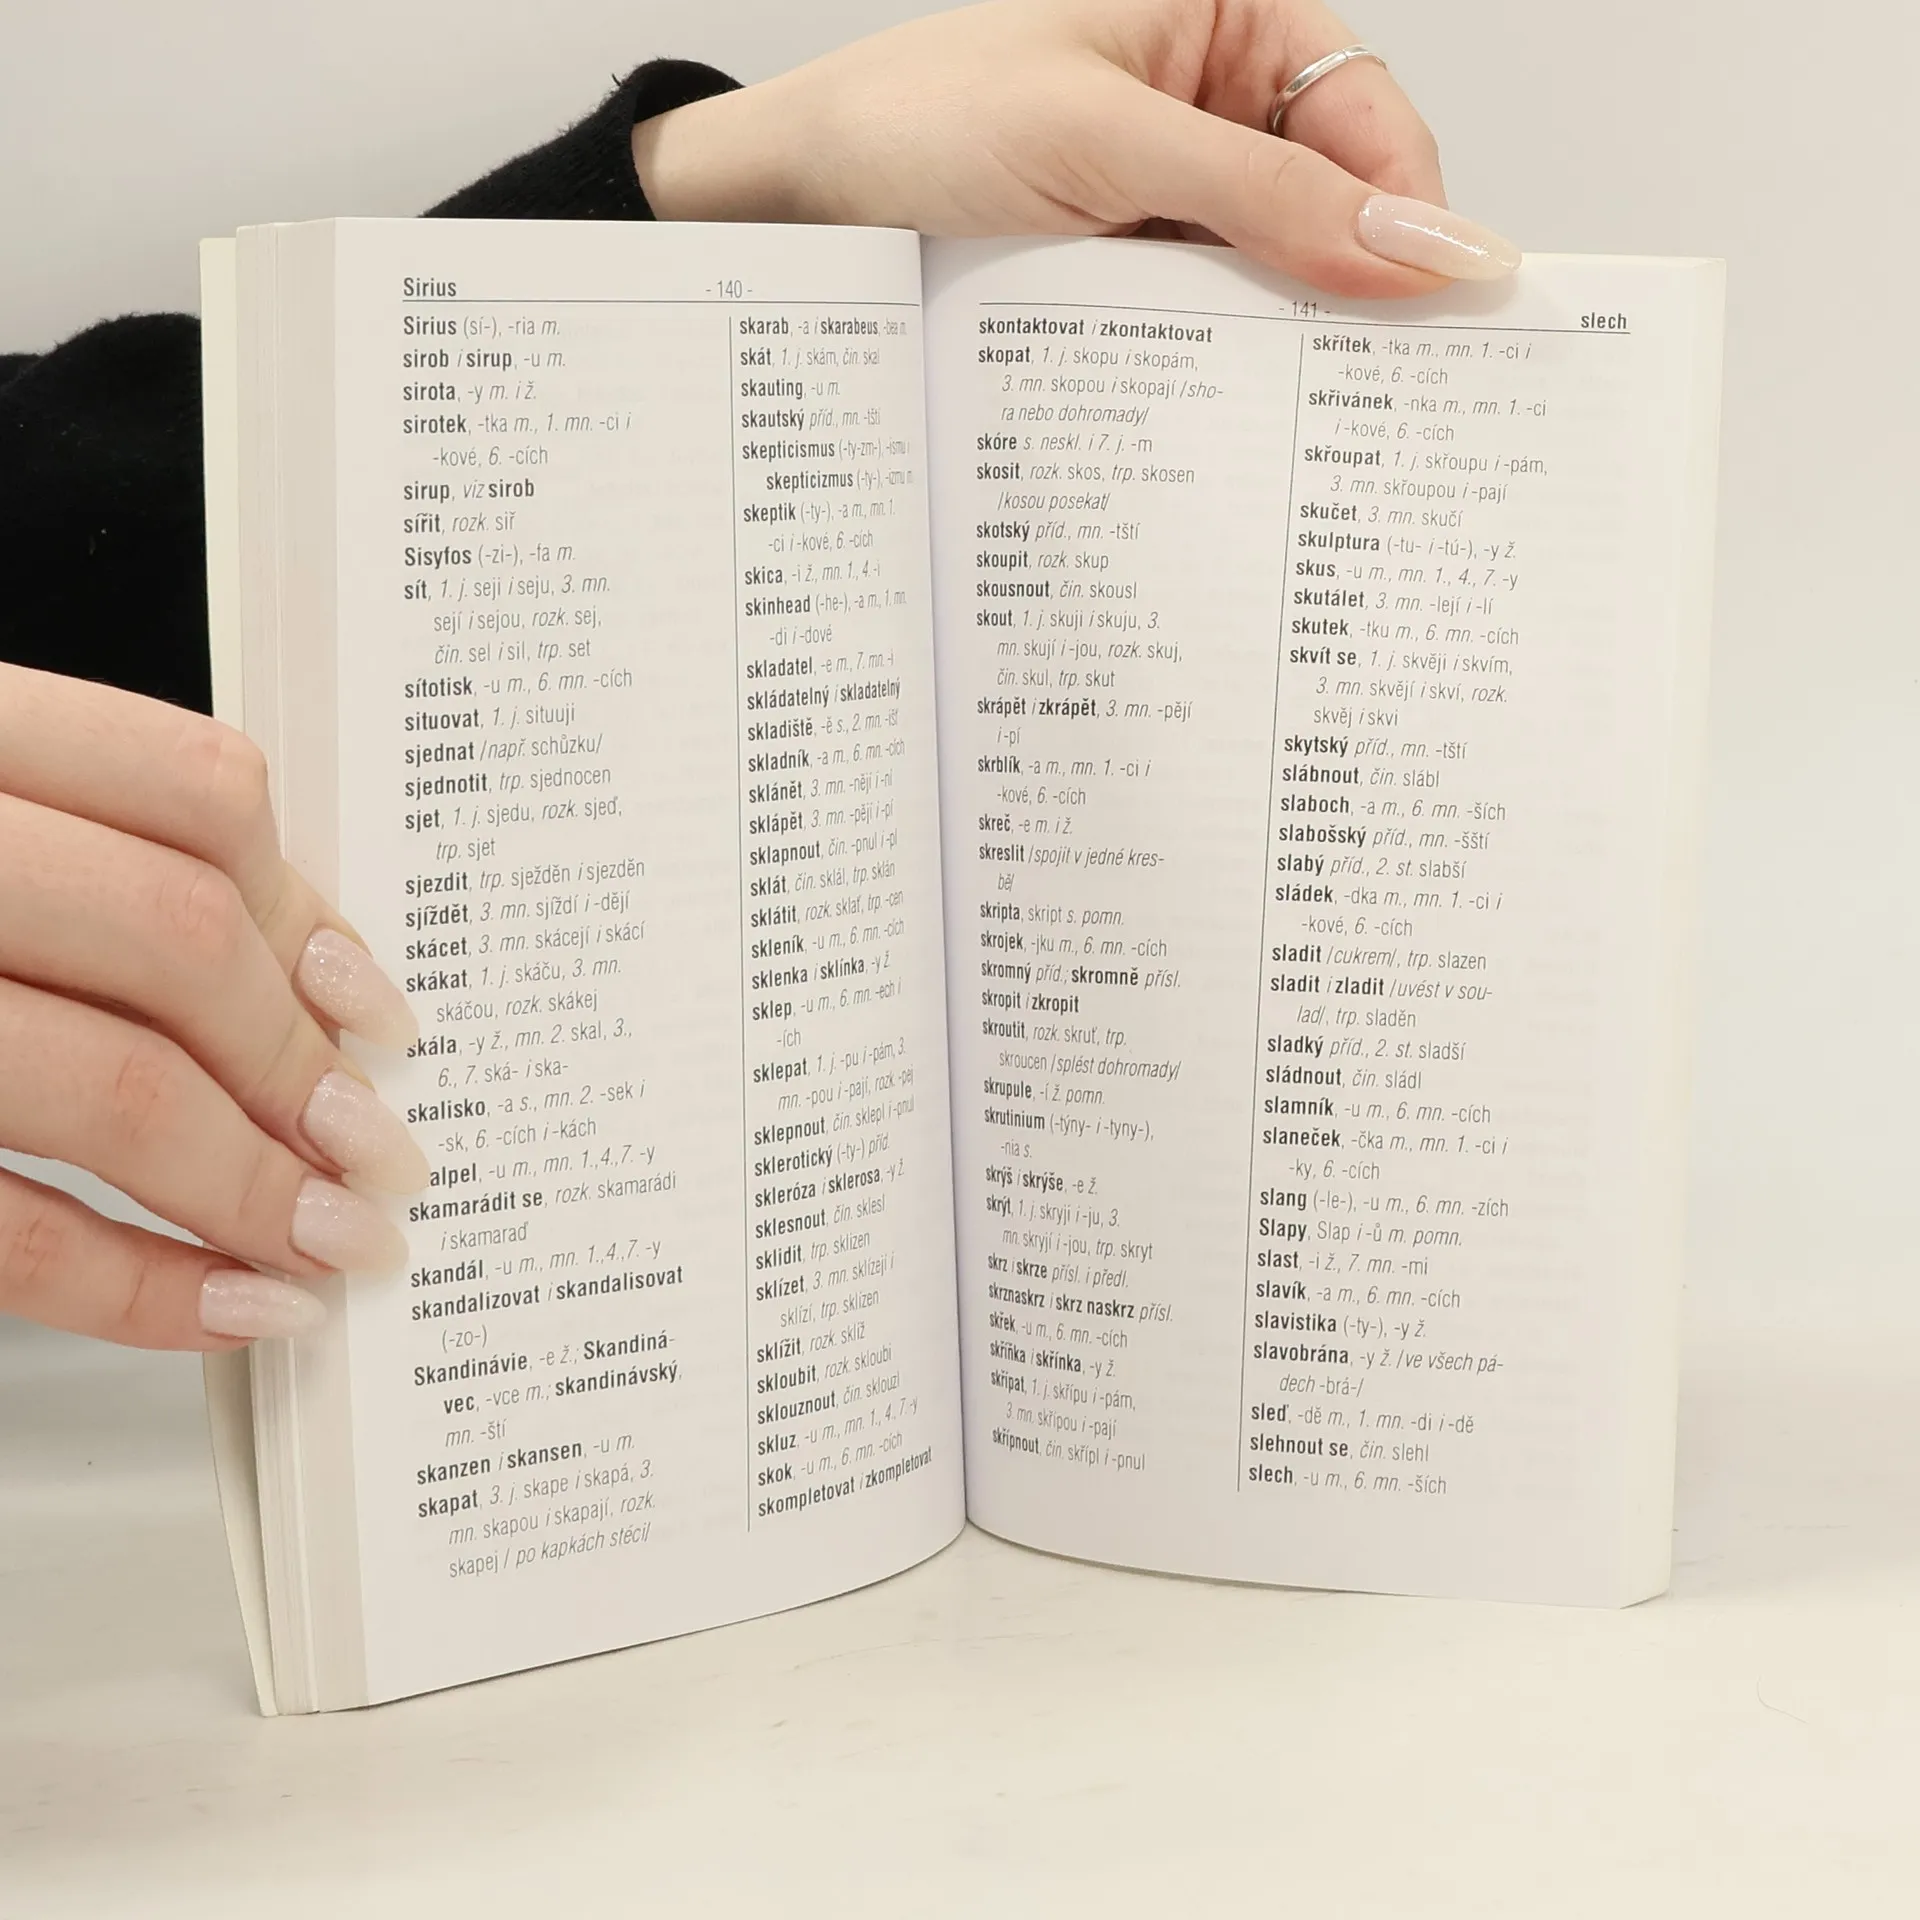 Sirius
- 140 -
Sirius (sí-), -ria m.
sirob i sirup, -u m.
sirota, -y m. i ž.
sirotek, -tka m., 1. mn. -ci i
-kové, 6. -cích
sirup, viz sirob
sířit, rozk. siř
Sisyfos (-zi-), -fa m.
sít, 1. j. seji i seju, 3. mn.
sejí i sejou, rozk. sej,
čin. sel i sil, trp. set
sítotisk, -u m., 6. mn. -cích
situovat, 1. j. situuji
sjednat /např. schůzku/
sjednotit, trp. sjednocen
sjet, 1. j. sjedu, rozk. sjeď,
trp. sjet
sjezdit, trp. sježděn i sjezděn
sjíždět, 3. mn. sjíždí i -dějí
skácet, 3. mn. skácejí i skácí
skákat, 1. j. skáču, 3. mn.
skáčou, rozk. skákej
skála, -y ž., mn. 2. skal, 3.,
6., 7. ská- i ska-
skalisko, -a s., mn. 2. -sek i
-sk, 6. -cích i -kách
alpel, -u m., mn. 1.,4.,7. -y
skamarádit se, rozk. skamarádi
i skamaraď
skandál, -u m., mn. 1.,4.,7. -y
skandalizovat i skandalisovat
(-zo-)
Skandinávie, -e ž.; Skandiná-
vec, -vce m.; skandinávský,
mn. -ští
skanzen i skansen, -u m.
skapat, 3. j. skape i skapá, 3.
mn. skapou i skapají, rozk.
skapej / po kapkách stéci/
skarab, -a i skarabeus, -bea m.
skát, 1. j. skám, čin. skal
skauting, -u m.
skautský příd., mn. -tští
skepticismus (-ty-zm-), -ismu i
skepticizmus (-ty-), -izmu m.
skeptik (-ty-), -a m., mn. 1.
-ci i -kové, 6. -cích
skica, -i ž., mn. 1., 4. -i
skinhead (-he-), -a m., 1. mn.
-di i -dové
skladatel, -e m., 7. mn. -i
skládatelný i skladatelný
skladiště, -ě s., 2. mn. -išť
skladník, -a m., 6. mn. -cích
sklánět, 3. mn. -nějí i -ní
sklápět, 3. mn. -pějí i -pí
sklapnout, čin. -pnul i -pl
sklát, čin. sklál, trp. sklán
sklátit, rozk. sklať, trp. -cen
skleník, -u m., 6. mn. -cích
sklenka i sklínka, -y ž.
sklep, -u m., 6. mn. -ech i
-ích
sklepat, 1. j. -pu i -pám, 3.
mn. -pou i -pají, rozk. -pej
sklepnout, čin. sklepl i -pnul
sklerotický (-ty-) příd.
skleróza i sklerosa, -y ž.
sklesnout, čin. sklesl
sklidit, trp. sklizen
sklízet, 3. mn. sklízejí i
sklízí, trp. sklízen
sklížit, rozk. skliž
skloubit, rozk. skloubi
sklouznout, čin. sklouzl
skluz, -u m., mn. 1., 4., 7. -y
skok, -u m., 6. mn. -cích
skompletovat i zkompletovat
- 141 -
slech
skontaktovat i zkontaktovat
skopat, 1. j. skopu i skopám,
3. mn. skopou i skopají /sho-
ra nebo dohromady/
skóre s. neskl. i 7. j. -m
skosit, rozk. skos, trp. skosen
/kosou posekat/
skotský příd., mn. -tští
skoupit, rozk. skup
skousnout, čin. skousl
skout, 1. j. skuji i skuju, 3.
mn. skují i -jou, rozk. skuj,
čin. skul, trp. skut
skrápět i zkrápět, 3. mn. -pějí
i -pí
skrblík, -a m., mn. 1. -ci i
-kové, 6. -cích
skreč, -e m. i ž.
skreslit /spojit v jedné kres-
bě/
skripta, skript s. pomn.
skrojek, -jku m., 6. mn. -cích
skromný příd.; skromně přísl.
skropit i zkropit
skroutit, rozk. skruť, trp.
skroucen /splést dohromady/
skrupule, -í ž. pomn.
skrutinium (-týny- i -tyny-),
-nia s.
skrýš i skrýše, -e ž.
skrýt, 1. j. skryji i -ju, 3.
mn. skryjí i -jou, trp. skryt
skrz i skrze přísl. i předl.
skrznaskrz i skrz naskrz přísl.
skřek, -u m., 6. mn. -cích
skříňka i skřínka, -y ž.
skřípat, 1. j. skřípu i -pám,
3. mn. skřípou i -pají
skřípnout, čin. skřípl i -pnul
skřítek, -tka m., mn. 1. -ci i
-kové, 6. -cích
skřivánek, -nka m., mn. 1. -ci
i -kové, 6. -cích
skřoupat, 1. j. skřoupu i -pám,
3. mn. skřoupou i -pají
skučet, 3. mn. skučí
skulptura (-tu- i -tú-), -y ž.
skus, -u m., mn. 1., 4., 7. -y
skutálet, 3. mn. -lejí i -lí
skutek, -tku m., 6. mn. -cích
skvít se, 1. j. skvěji i skvím,
3. mn. skvějí i skví, rozk.
skvěj i skvi
skytský příd., mn. -tští
slábnout, čin. slábl
slaboch, -a m., 6. mn. -ších
slabošský příd., mn. -šští
slabý příd., 2. st. slabší
sládek, -dka m., mn. 1. -ci i
-kové, 6. -cích
sladit /cukrem/, trp. slazen
sladit i zladit /uvést v sou-
lad/, trp. sladěn
sladký příd., 2. st. sladší
sládnout, čin. sládl
slamník, -u m., 6. mn. -cích
slaneček, -čka m., mn. 1. -ci i
-ky, 6. -cích
slang (-le-), -u m., 6. mn. -zích
Slapy, Slap i -ů m. pomn.
slast, -i ž., 7. mn. -mi
slavík, -a m., 6. mn. -cích
slavistika (-ty-), -y ž.
slavobrána, -y ž. /ve všech pá-
dech -brá-/
sleď, -dě m., 1. mn. -di i -dě
slehnout se, čin. slehl
slech, -u m., 6. mn. -ších